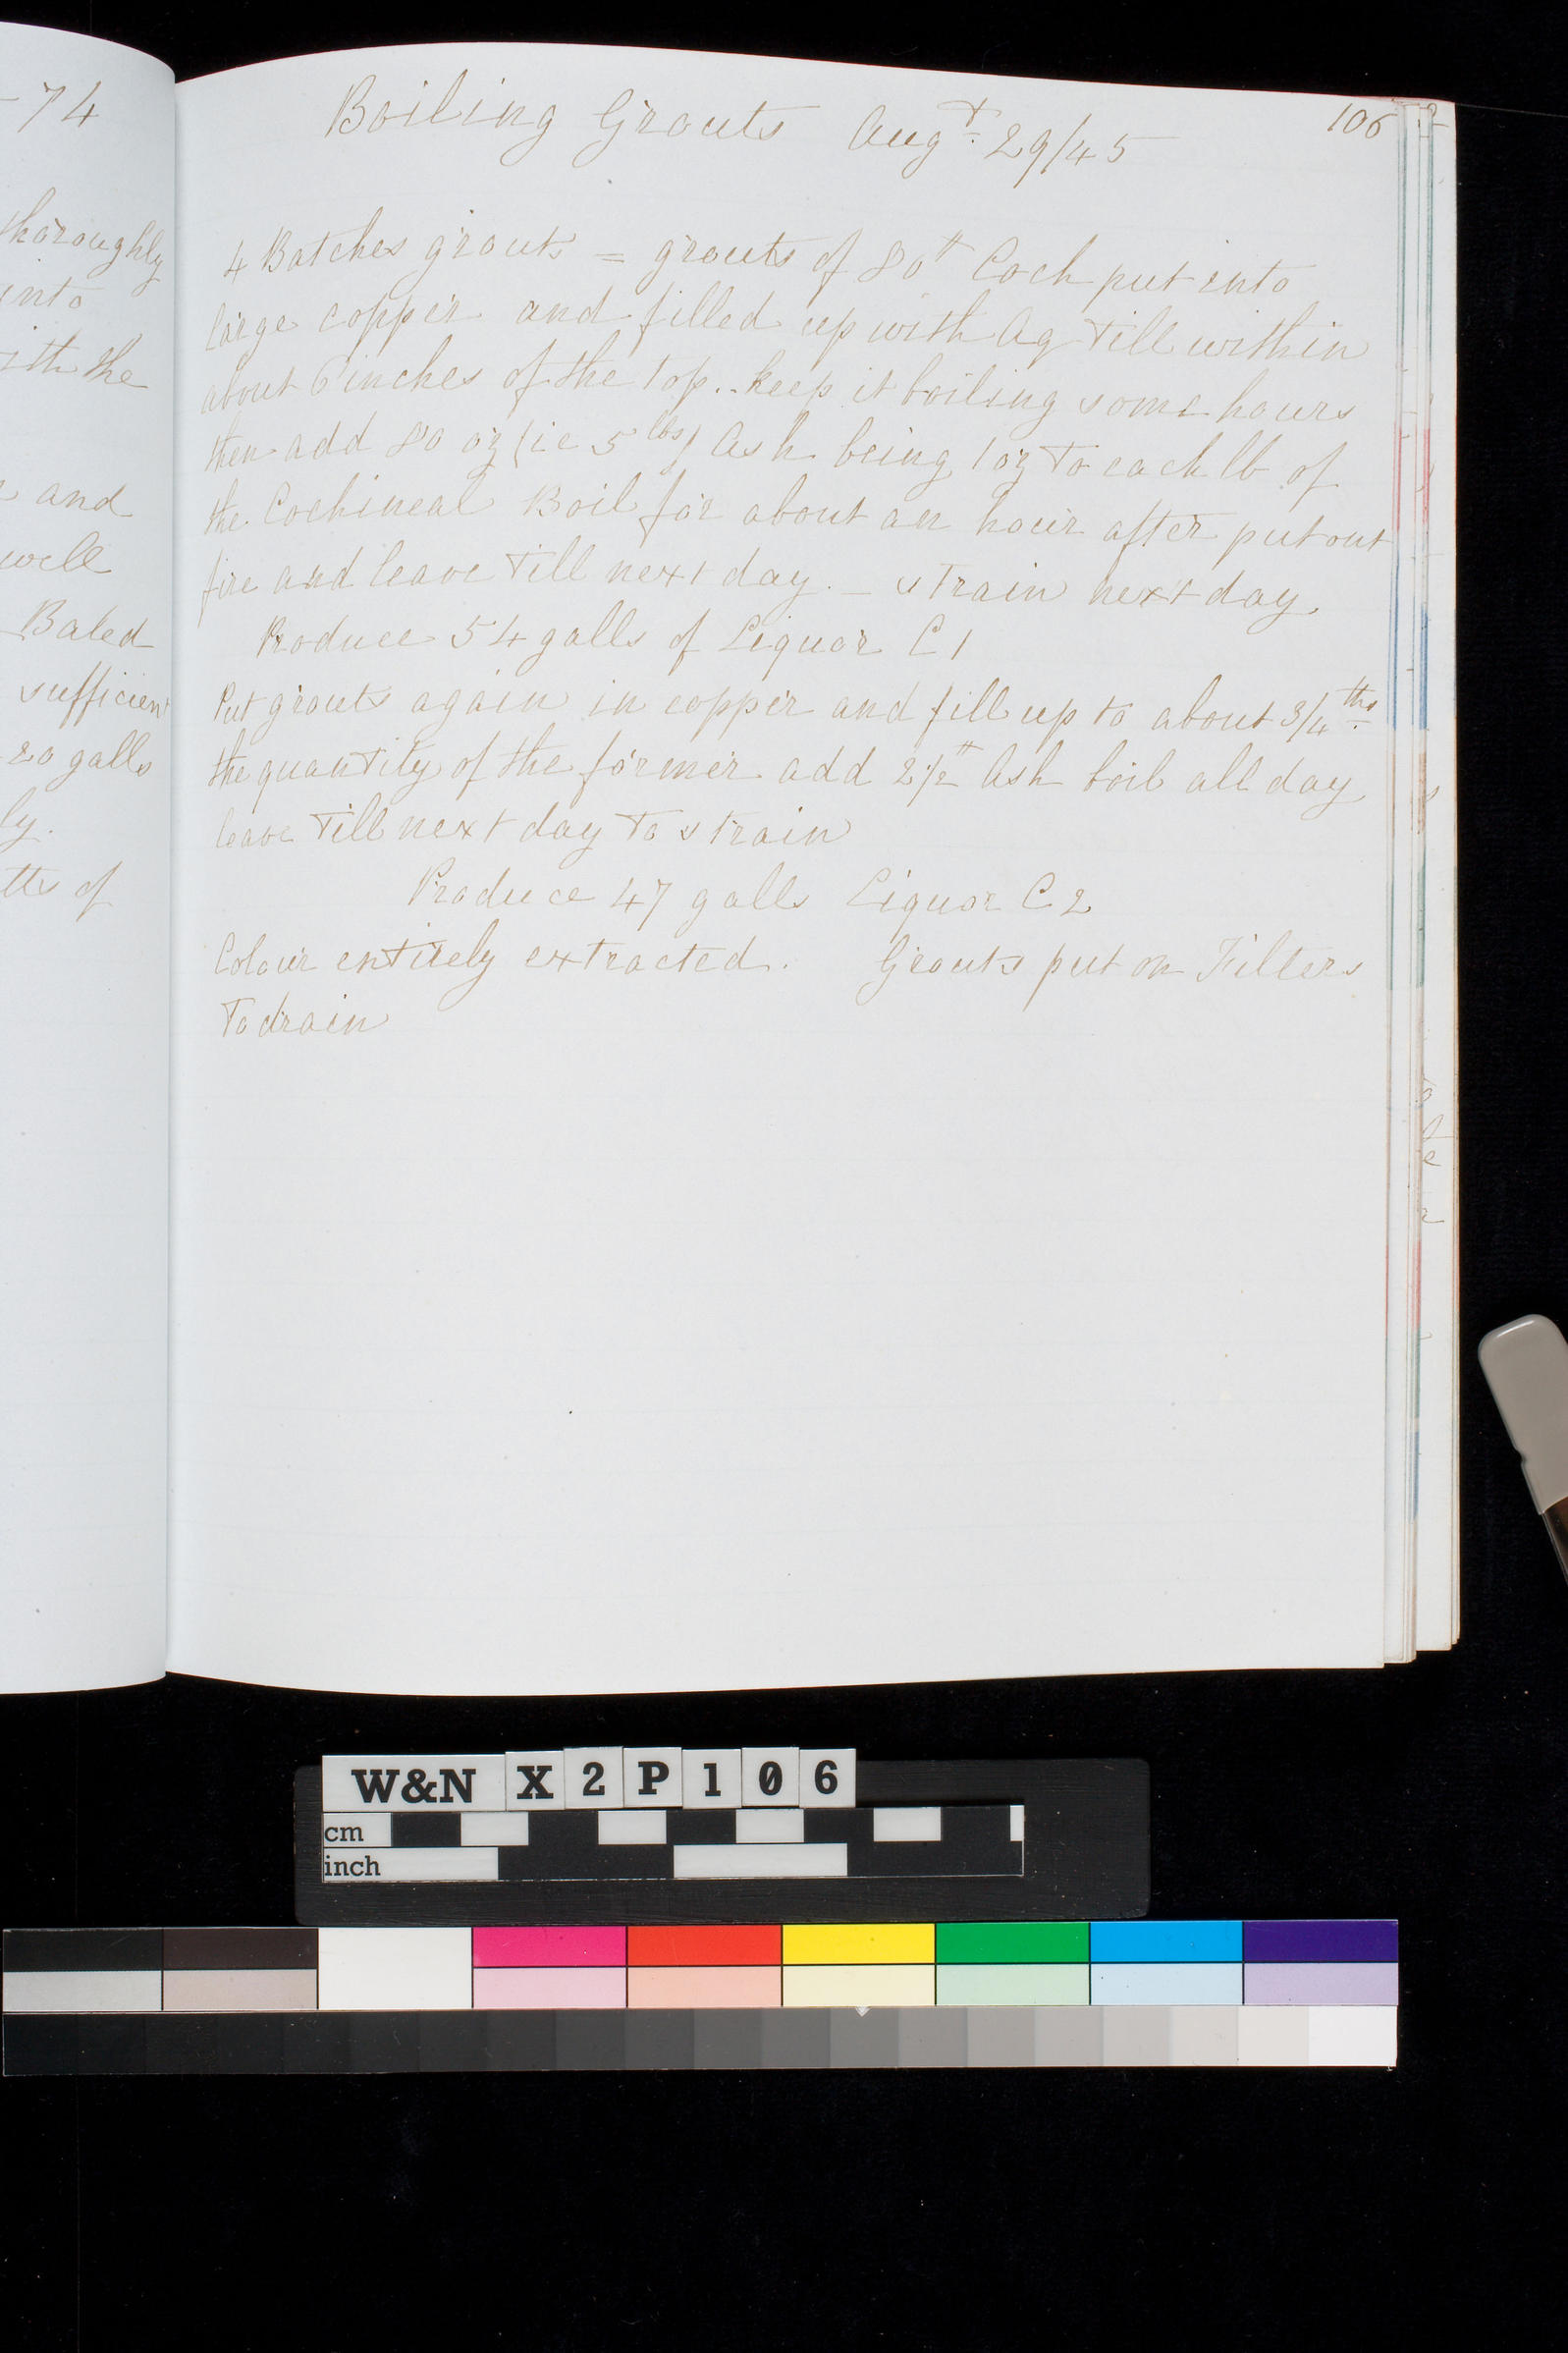 - 74
thoroughly
into
ith the
and
well
Baled
sufficient
20 galls
ly.
tts of
106
Boiling Grouts Augt. 29/45
4 Batches grouts = grouts of 80# Coch put into
large copper and filled up with Aq till within
about 6 inches of the top.. keep it boiling some hours
then add 80 oz (ie 5 lbs) Ash being 1 oz to each lb of
the Cochineal Boil for about an hour after put out
fire and leave till next day. _ strain next day.
Produce 54 galls of Liquor C 1
Put grouts again in copper and fill up to about 3/4ths
the quantity of the former add 2 1/2# Ash boil all day
leave till next day to strain
Produce 47 galls Liquor C 2
Colour entirely extracted. Grouts put on Filters
To drain
W&N X2P106
cm
inch